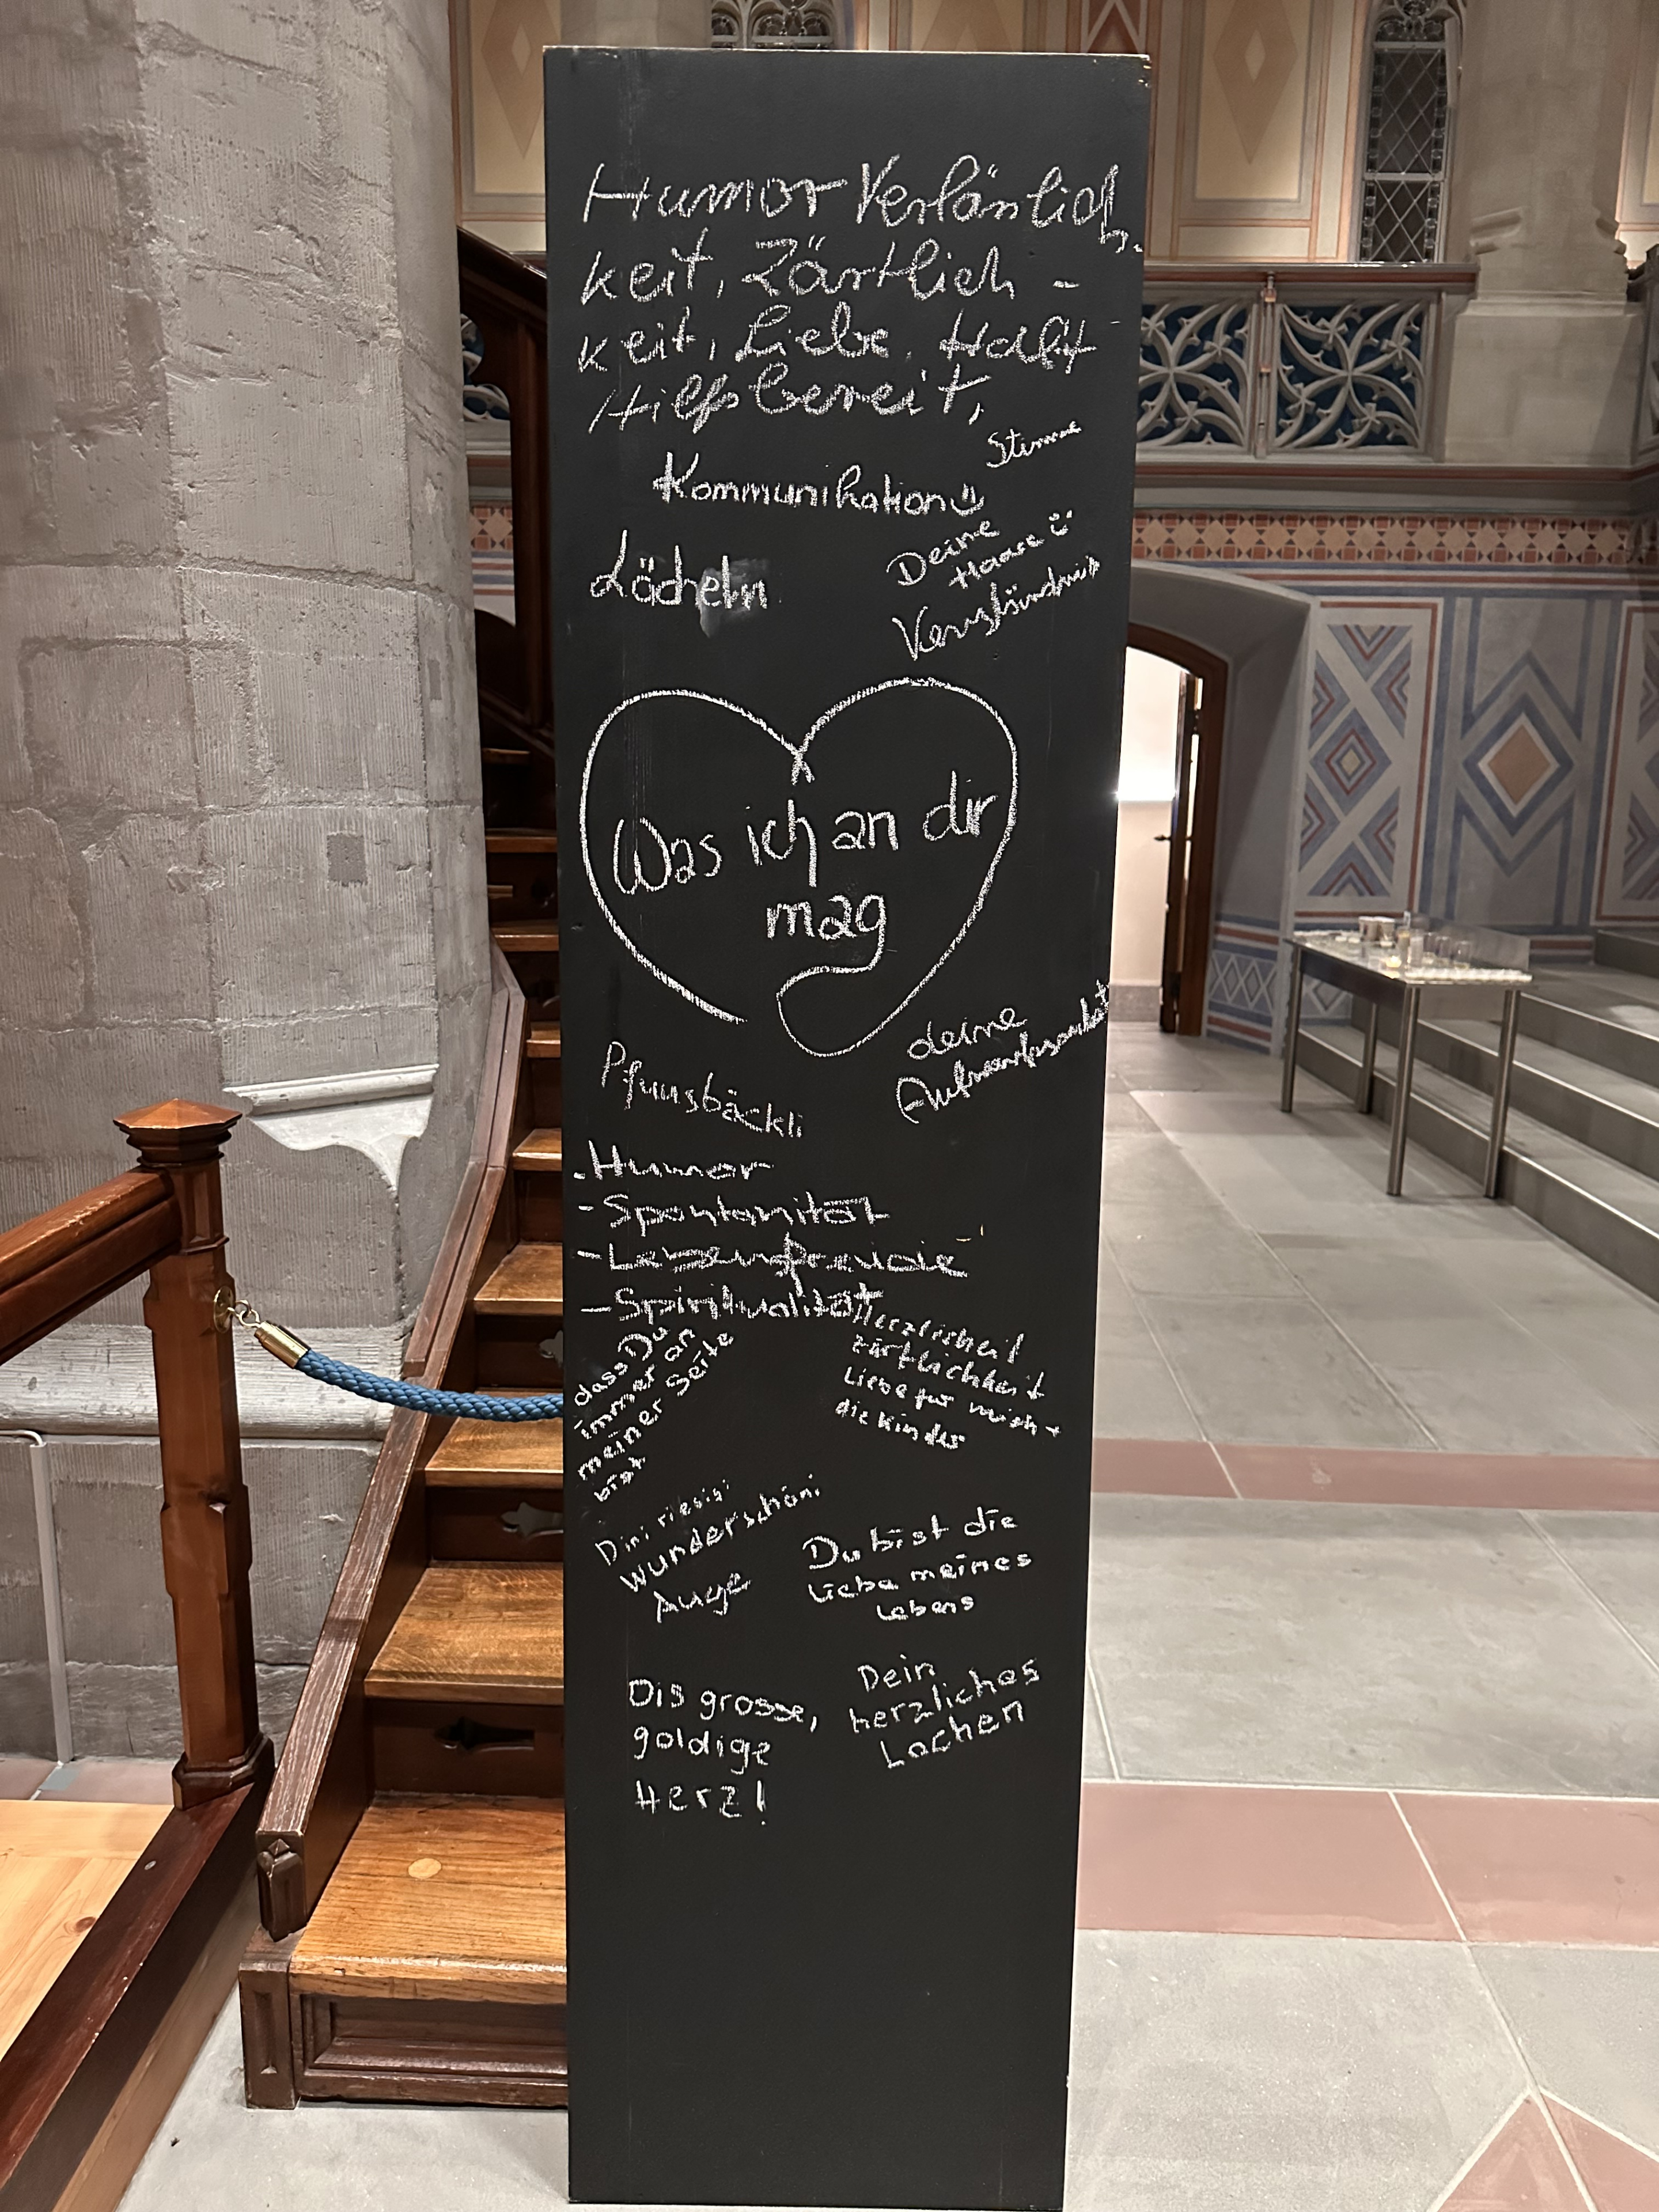 Humor Verläßlich-
keit, Zärtlich-
keit, Liebe,
Hilfsbereit,
Stimme
Kommunikation
Deine
Haare
Lächeln
Verständnis
Was ich an dir
mag
deine
Aufmerksamkeit
Pfuusbäckli
.Humor
- Spontanität
- Lebensfreude
- Spiritualität
dass Du
immer an
meiner Seite
bist
zärtlichkeit
Liebe für mich +
die Kinder
Dini riesigi
wunderschöni
Auge
Du bist die
Liebe meines
Lebens
Dis grosse,
goldige
Herz!
Dein
herzliches
Lachen